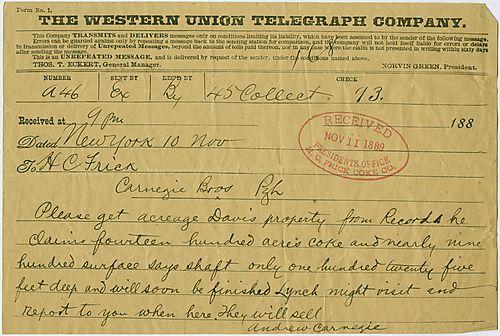 Form No. 1.
THE WESTERN UNION TELEGRAPH COMPANY.
This Company TRANSMITS and DELIVERS messages only on conditions limiting its liability, which have been assented to by the sender of the following message.
Errors can be guarded against only by repeating a message back to the sending station for comparison, and the company will not hold itself liable for errors or delays
in transmission or delivery of Unrepeated Messages, beyond the amount of tolls paid thereon, nor in any case where the claim is not presented in writing within sixty days
after sending the message.
This is an UNREPEATED MESSAGE, and is delivered by request of the sender, under the conditions named above.
THOS. T. ECKERT, General Manager. NORVIN GREEN, President.
NUMBER SENT BY REC'D BY CHECK
A46 Ex By 45 Collect 93.
Received at 9 pm 188
Dated New York 10 Nov
To H C Frick
Carnegie Bros Pgh
RECEIVED
NOV 11 1889
PRESIDENTS OFFICE
H. C. FRICK COKE CO.
Please get acreage Davis property from Records he
claims fourteen hundred acres coke and nearly nine
hundred surface says shaft only one hundred twenty five
feet deep and will soon be finished Lynch might visit and
report to you when here. They will sell
Andrew Carnegie